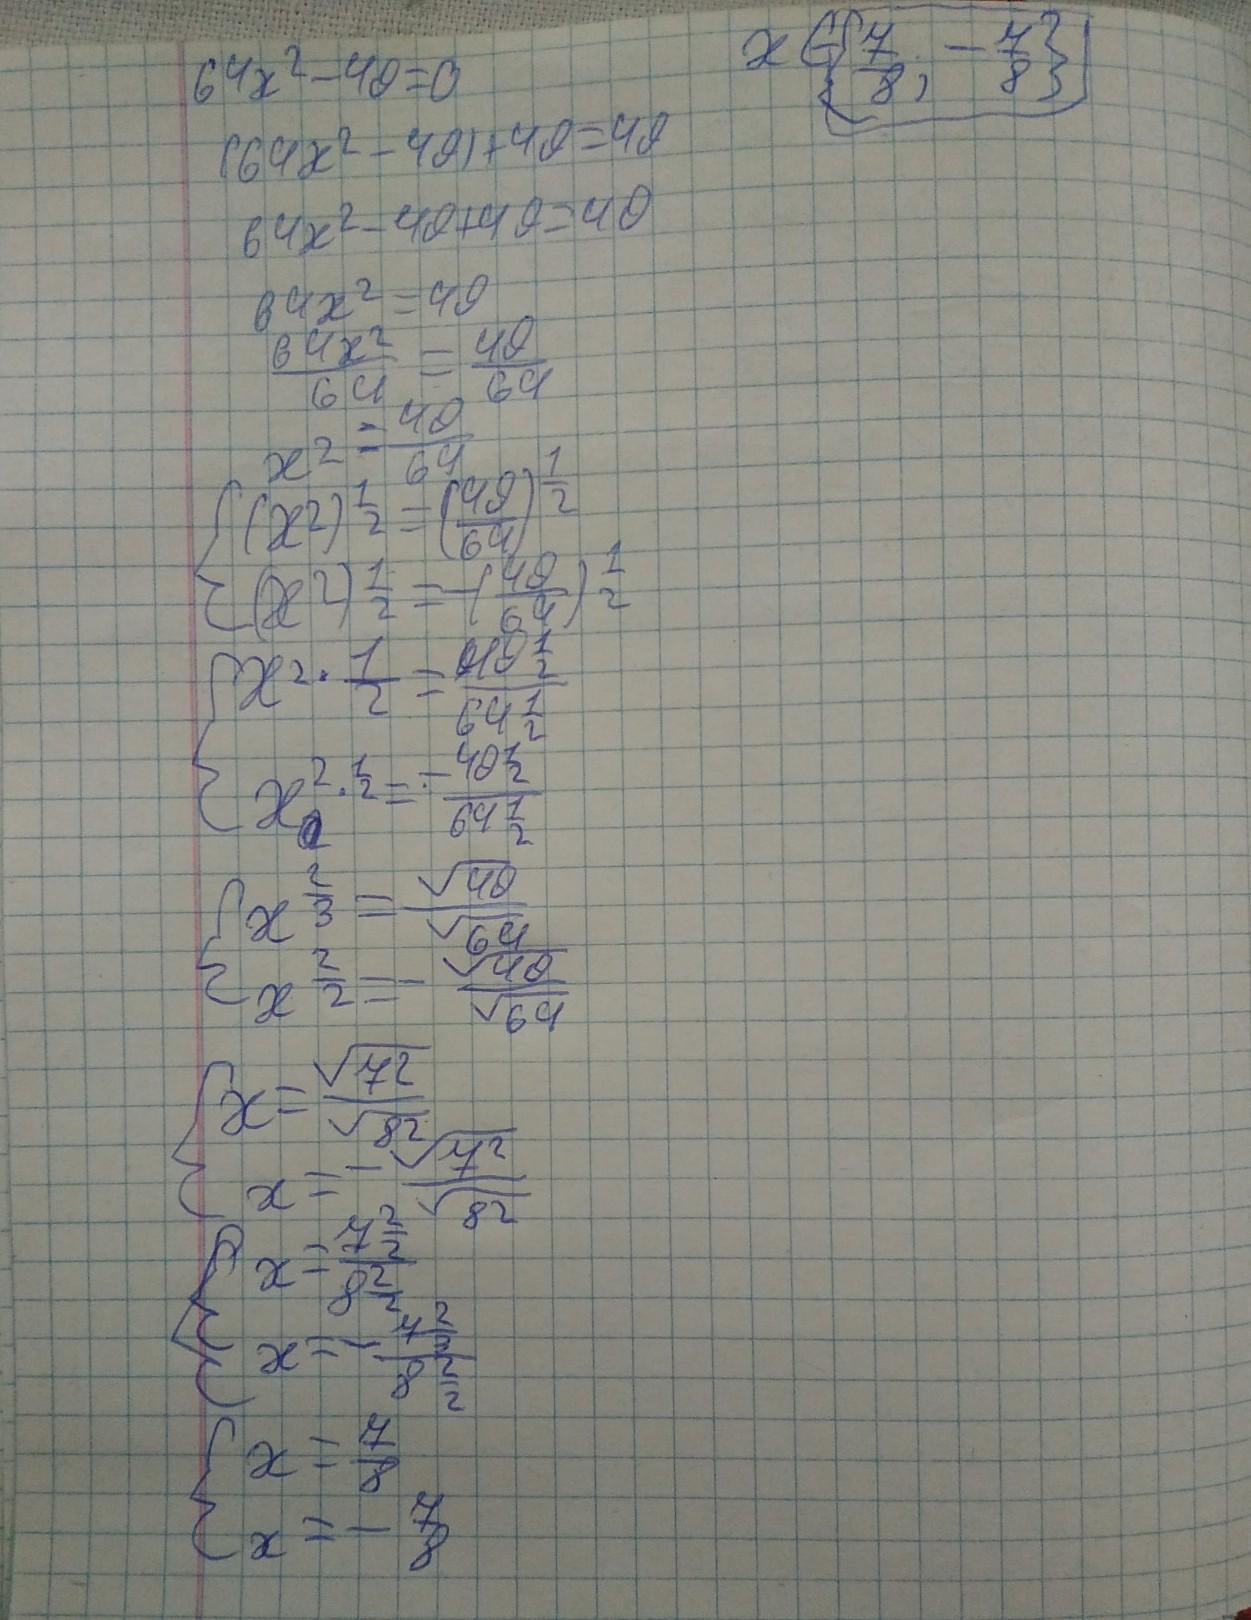 64x² - 49 = 0
x ∈ {7/8; -7/8}
(64x² - 49) + 49 = 49
64x² - 49 + 49 = 49
64x² = 49
64x²/64 = 49/64
x² = 49/64
{ (x²)^(1/2) = (49/64)^(1/2)
(x²)^(1/2) = -(49/64)^(1/2)
{ x^(2·1/2) = 49^(1/2)/64^(1/2)
x^(2·1/2) = -49^(1/2)/64^(1/2)
{ x^(2/3) = √49/√64
x^(2/2) = -√49/√64
{ x = √7²/√8²
x = -√7²/√8²
{ x = 7^(2/2)/8^(2/2)
x = -7^(2/2)/8^(2/2)
{ x = 7/8
x = -7/8